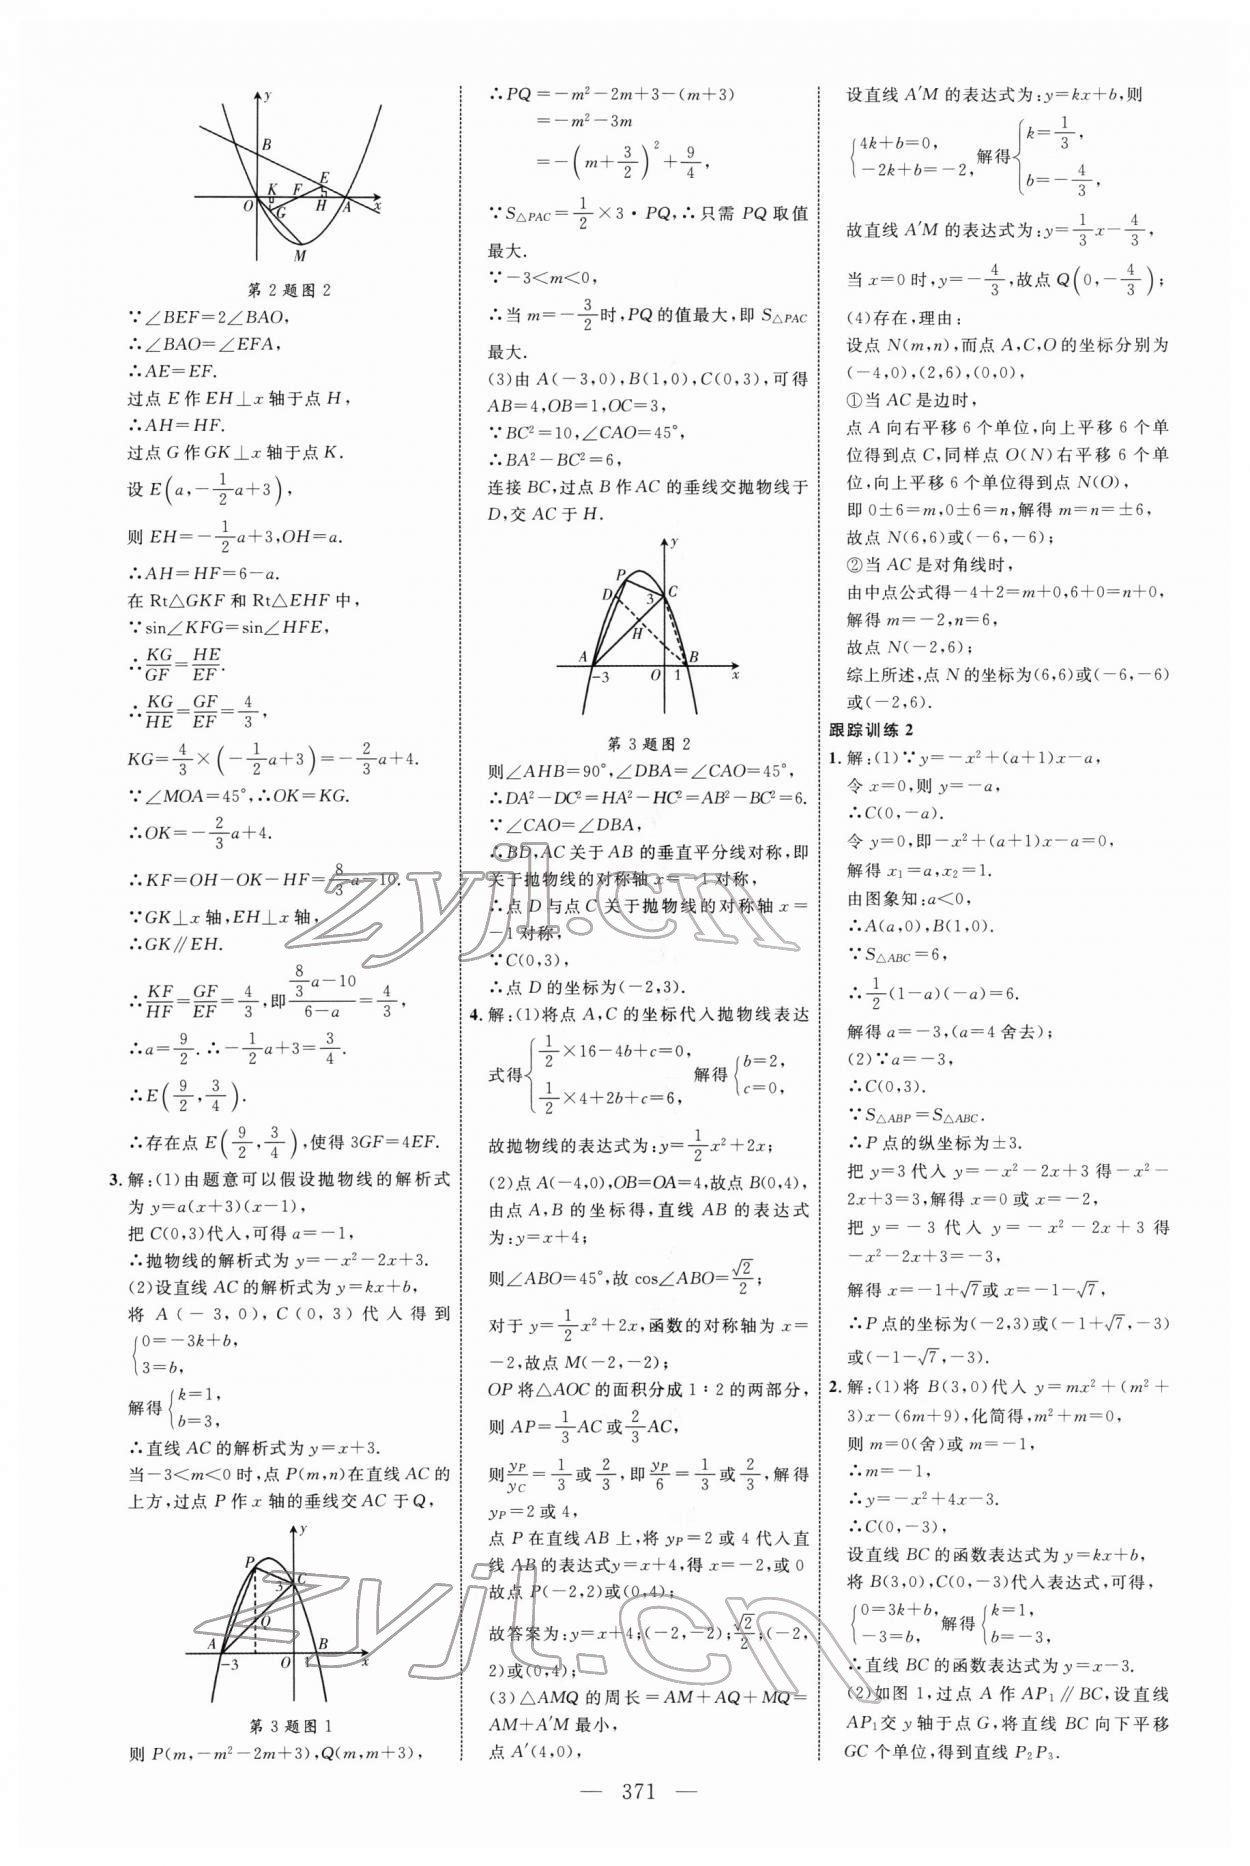 y
B
E
K
F
O
G
H
A
x
M
第2题图2
∵∠BEF=2∠BAO,
∴∠BAO=∠EFA,
∴AE=EF.
过点 E 作 EH⊥x 轴于点 H,
∴AH=HF.
过点 G 作 GK⊥x 轴于点 K.
设 E(a,-1/2a+3),
则 EH=-1/2a+3,OH=a.
∴AH=HF=6-a.
在 Rt△GKF 和 Rt△EHF 中,
∵sin∠KFG=sin∠HFE,
∴KG/GF=HE/EF.
∴KG/HE=GF/EF=4/3,
KG=4/3×(-1/2a+3)=-2/3a+4.
∵∠MOA=45°,∴OK=KG.
∴OK=-2/3a+4.
∴KF=OH-OK-HF=8/3a-10.
∵GK⊥x 轴,EH⊥x 轴,
∴GK∥EH.
∴KF/HF=GF/EF=4/3,即(8/3a-10)/(6-a)=4/3,
∴a=9/2.∴-1/2a+3=3/4.
∴E(9/2,3/4).
∴存在点 E(9/2,3/4),使得 3GF=4EF.
3. 解:(1)由题意可以假设抛物线的解析式
为 y=a(x+3)(x-1),
把 C(0,3)代入,可得 a=-1,
∴抛物线的解析式为 y=-x²-2x+3.
(2)设直线 AC 的解析式为 y=kx+b,
将 A(-3,0),C(0,3)代入得到
{0=-3k+b,
3=b,
解得{k=1,
b=3,
∴直线 AC 的解析式为 y=x+3.
当-3<m<0 时,点 P(m,n)在直线 AC 的
上方,过点 P 作 x 轴的垂线交 AC 于 Q,
y
P
C
3
Q
A
B
-3
O
1
x
第3题图1
则 P(m,-m²-2m+3),Q(m,m+3),
∴PQ=-m²-2m+3-(m+3)
=-m²-3m
=-(m+3/2)²+9/4,
∵S△PAC=1/2×3·PQ,∴只需 PQ 取值
最大.
∵-3<m<0,
∴当 m=-3/2时,PQ 的值最大,即 S△PAC
最大.
(3)由 A(-3,0),B(1,0),C(0,3),可得
AB=4,OB=1,OC=3,
∵BC²=10,∠CAO=45°,
∴BA²-BC²=6,
连接 BC,过点 B 作 AC 的垂线交抛物线于
D,交 AC 于 H.
y
P
D
3
C
H
A
B
-3
O
1
x
第3题图2
则∠AHB=90°,∠DBA=∠CAO=45°,
∴DA²-DC²=HA²-HC²=AB²-BC²=6.
∵∠CAO=∠DBA,
∴BD,AC 关于 AB 的垂直平分线对称,即
关于抛物线的对称轴 x=-1 对称,
∴点 D 与点 C 关于抛物线的对称轴 x=
-1 对称,
∵C(0,3),
∴点 D 的坐标为(-2,3).
4. 解:(1)将点 A,C 的坐标代入抛物线表达
式得{1/2×16-4b+c=0,
1/2×4+2b+c=6,
解得{b=2,
c=0,
故抛物线的表达式为:y=1/2x²+2x;
(2)点 A(-4,0),OB=OA=4,故点 B(0,4),
由点 A,B 的坐标得,直线 AB 的表达式
为:y=x+4;
则∠ABO=45°,故 cos∠ABO=√2/2;
对于 y=1/2x²+2x,函数的对称轴为 x=
-2,故点 M(-2,-2);
OP 将△AOC 的面积分成 1∶2 的两部分,
则 AP=1/3AC 或2/3AC,
则yP/yC=1/3或2/3,即yP/6=1/3或2/3,解得
yP=2 或 4,
点 P 在直线 AB 上,将 yP=2 或 4 代入直
线 AB 的表达式y=x+4,得 x=-2,或 0
故点 P(-2,2)或(0,4);
故答案为:y=x+4;(-2,-2);√2/2;(-2,
2)或(0,4);
(3)△AMQ 的周长=AM+AQ+MQ=
AM+A′M 最小,
点 A′(4,0),
设直线 A′M 的表达式为:y=kx+b,则
{4k+b=0,
-2k+b=-2,
解得{k=1/3,
b=-4/3,
故直线 A′M 的表达式为:y=1/3x-4/3,
当 x=0 时,y=-4/3,故点 Q(0,-4/3);
(4)存在,理由:
设点 N(m,n),而点 A,C,O 的坐标分别为
(-4,0),(2,6),(0,0),
①当 AC 是边时,
点 A 向右平移 6 个单位,向上平移 6 个单
位得到点 C,同样点 O(N)右平移 6 个单
位,向上平移 6 个单位得到点 N(O),
即 0±6=m,0±6=n,解得 m=n=±6,
故点 N(6,6)或(-6,-6);
②当 AC 是对角线时,
由中点公式得-4+2=m+0,6+0=n+0,
解得 m=-2,n=6,
故点 N(-2,6);
综上所述,点 N 的坐标为(6,6)或(-6,-6)
或(-2,6).
跟踪训练 2
1. 解:(1)∵y=-x²+(a+1)x-a,
令 x=0,则 y=-a,
∴C(0,-a).
令 y=0,即-x²+(a+1)x-a=0,
解得 x₁=a,x₂=1.
由图象知:a<0,
∴A(a,0),B(1,0).
∵S△ABC=6,
∴1/2(1-a)(-a)=6.
解得 a=-3,(a=4 舍去);
(2)∵a=-3,
∴C(0,3).
∵S△ABP=S△ABC.
∴P 点的纵坐标为±3.
把 y=3 代入 y=-x²-2x+3 得-x²-
2x+3=3,解得 x=0 或 x=-2,
把 y=-3 代入 y=-x²-2x+3 得
-x²-2x+3=-3,
解得 x=-1+√7或 x=-1-√7,
∴P 点的坐标为(-2,3)或(-1+√7,-3)
或(-1-√7,-3).
2. 解:(1)将 B(3,0)代入 y=mx²+(m²+
3)x-(6m+9),化简得,m²+m=0,
则 m=0(舍)或 m=-1,
∴m=-1,
∴y=-x²+4x-3.
∴C(0,-3),
设直线 BC 的函数表达式为 y=kx+b,
将 B(3,0),C(0,-3)代入表达式,可得,
{0=3k+b,
-3=b,
解得{k=1,
b=-3,
∴直线 BC 的函数表达式为 y=x-3.
(2)如图 1,过点 A 作 AP₁∥BC,设直线
AP₁交 y轴于点 G,将直线 BC 向下平移
GC 个单位,得到直线 P₂P₃.
— 371 —
zyjl.cn
zyjl.cn